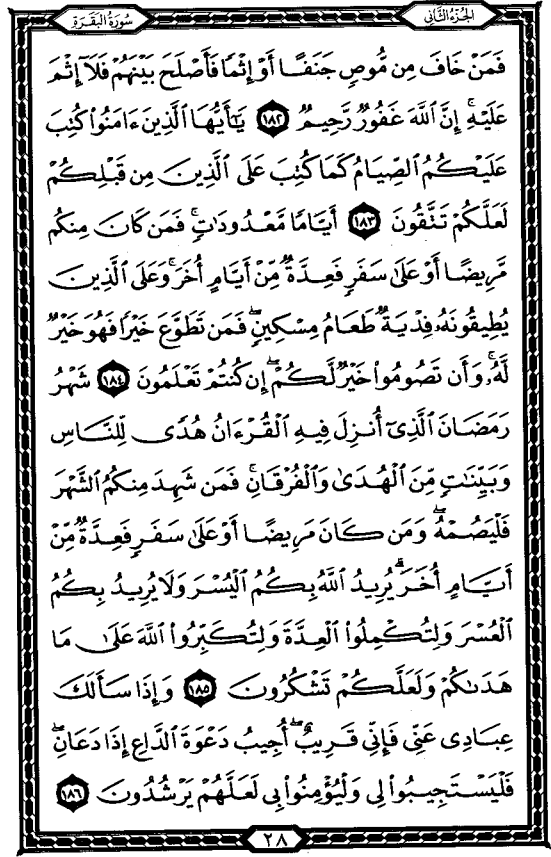 سُورَةُ البَقَرَةِ
الجُزءُ الثَّانِي
فَمَنْ خَافَ مِن مُّوصٍ جَنَفًا أَوْ إِثْمًا فَأَصْلَحَ بَيْنَهُمْ فَلَآ إِثْمَ
عَلَيْهِۚ إِنَّ ٱللَّهَ غَفُورٌ رَّحِيمٌ ١٨٢ يَـٰٓأَيُّهَا ٱلَّذِينَ ءَامَنُوا۟ كُتِبَ
عَلَيْكُمُ ٱلصِّيَامُ كَمَا كُتِبَ عَلَى ٱلَّذِينَ مِن قَبْلِكُمْ
لَعَلَّكُمْ تَتَّقُونَ ١٨٣ أَيَّامًا مَّعْدُودَٰتٍۚ فَمَن كَانَ مِنكُم
مَّرِيضًا أَوْ عَلَىٰ سَفَرٍ فَعِدَّةٌ مِّنْ أَيَّامٍ أُخَرَۚ وَعَلَى ٱلَّذِينَ
يُطِيقُونَهُۥ فِدْيَةٌ طَعَامُ مِسْكِينٍۖ فَمَن تَطَوَّعَ خَيْرًا فَهُوَ خَيْرٌ
لَّهُۥۚ وَأَن تَصُومُوا۟ خَيْرٌ لَّكُمْۖ إِن كُنتُمْ تَعْلَمُونَ ١٨٤ شَهْرُ
رَمَضَانَ ٱلَّذِىٓ أُنزِلَ فِيهِ ٱلْقُرْءَانُ هُدًى لِّلنَّاسِ
وَبَيِّنَـٰتٍ مِّنَ ٱلْهُدَىٰ وَٱلْفُرْقَانِۚ فَمَن شَهِدَ مِنكُمُ ٱلشَّهْرَ
فَلْيَصُمْهُۖ وَمَن كَانَ مَرِيضًا أَوْ عَلَىٰ سَفَرٍ فَعِدَّةٌ مِّنْ
أَيَّامٍ أُخَرَۗ يُرِيدُ ٱللَّهُ بِكُمُ ٱلْيُسْرَ وَلَا يُرِيدُ بِكُمُ
ٱلْعُسْرَ وَلِتُكْمِلُوا۟ ٱلْعِدَّةَ وَلِتُكَبِّرُوا۟ ٱللَّهَ عَلَىٰ مَا
هَدَىٰكُمْ وَلَعَلَّكُمْ تَشْكُرُونَ ١٨٥ وَإِذَا سَأَلَكَ
عِبَادِى عَنِّى فَإِنِّى قَرِيبٌۖ أُجِيبُ دَعْوَةَ ٱلدَّاعِ إِذَا دَعَانِۖ
فَلْيَسْتَجِيبُوا۟ لِى وَلْيُؤْمِنُوا۟ بِى لَعَلَّهُمْ يَرْشُدُونَ ١٨٦
٢٨